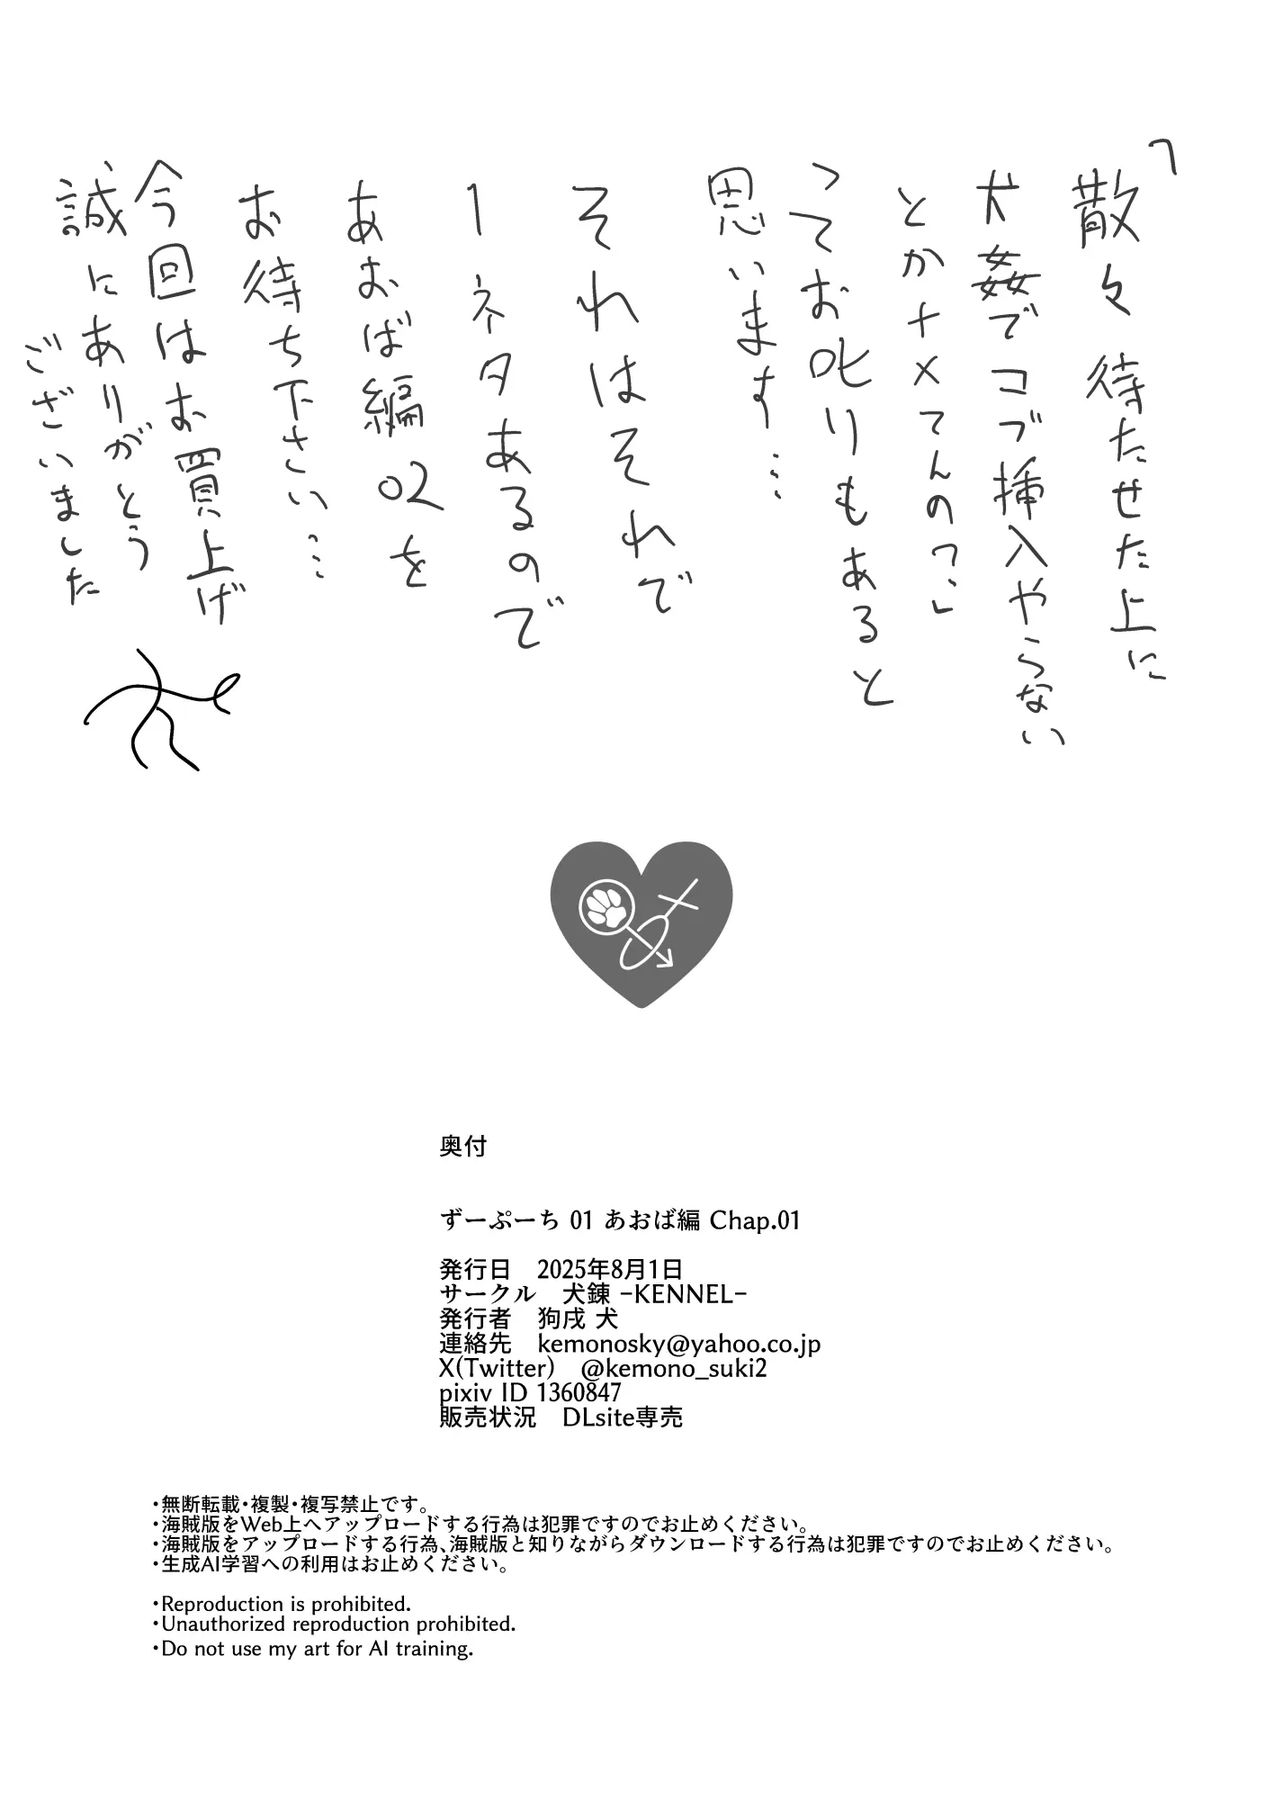 「散々待たせた上に
犬姦でコブ挿入やらない
とかナメてんの？」
ってお叱りもあると
思います…
それはそれで
1ネタあるので
あおば編02を
お待ち下さい…
今回はお買上げ
誠にありがとう
ございました
奥付
ずーぷーち 01 あおば編 Chap.01
発行日　2025年8月1日
サークル　犬錬 -KENNEL-
発行者　狗戌 犬
連絡先　kemonosky@yahoo.co.jp
X(Twitter)　@kemono_suki2
pixiv ID 1360847
販売状況　DLsite専売
・無断転載・複製・複写禁止です。
・海賊版をWeb上へアップロードする行為は犯罪ですのでお止めください。
・海賊版をアップロードする行為、海賊版と知りながらダウンロードする行為は犯罪ですのでお止めください。
・生成AI学習への利用はお止めください。
・Reproduction is prohibited.
・Unauthorized reproduction prohibited.
・Do not use my art for AI training.